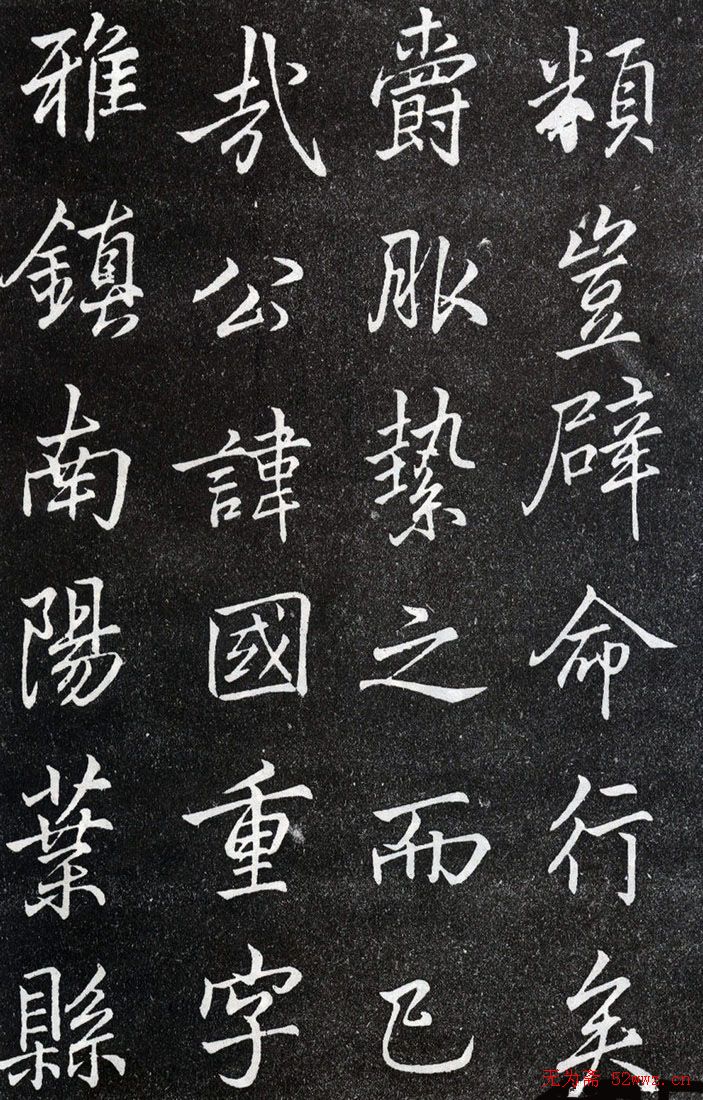 類豈辟命行矣
爵服縶之而已
哉公諱國重字
雅鎮南陽葉縣
无为斋 52wwz.cn